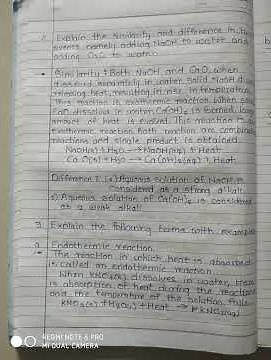 Explain the similarity and difference in two
events, namely adding NaOH to water and
adding CaO to water.
Similarity : Both NaOH and CaO, when
dissolved separately in water, solid NaOH
releasing heat, resulting in rise in temperature
This reaction is exothermic reaction. When
CaO dissolves in water, Ca(OH)2 is formed
amount of heat is evolved. This reaction is
exothermic reaction. Both reaction are
reactions and single product is obtained.
NaOH(s) + H2O → NaOH(aq) + Heat
CaO(s) + H2O → Ca(OH)2(aq) + Heat
Difference : (a) Aqueous solution of NaOH is
considered as a strong alkali
b) Aqueous solution of Ca(OH)2 is considered
as a weak alkali.
3. Explain the following terms with examples
a. Endothermic reaction
→ The reaction in which heat is absorbed
is called an endothermic reaction.
When KNO3(s) dissolves in water, there
is absorption of heat during the reaction
and the temperature of the solution falls
KNO3(s) + H2O(l) + Heat → KNO3(aq)
REDMI NOTE 6 PRO
MI DUAL CAMERA